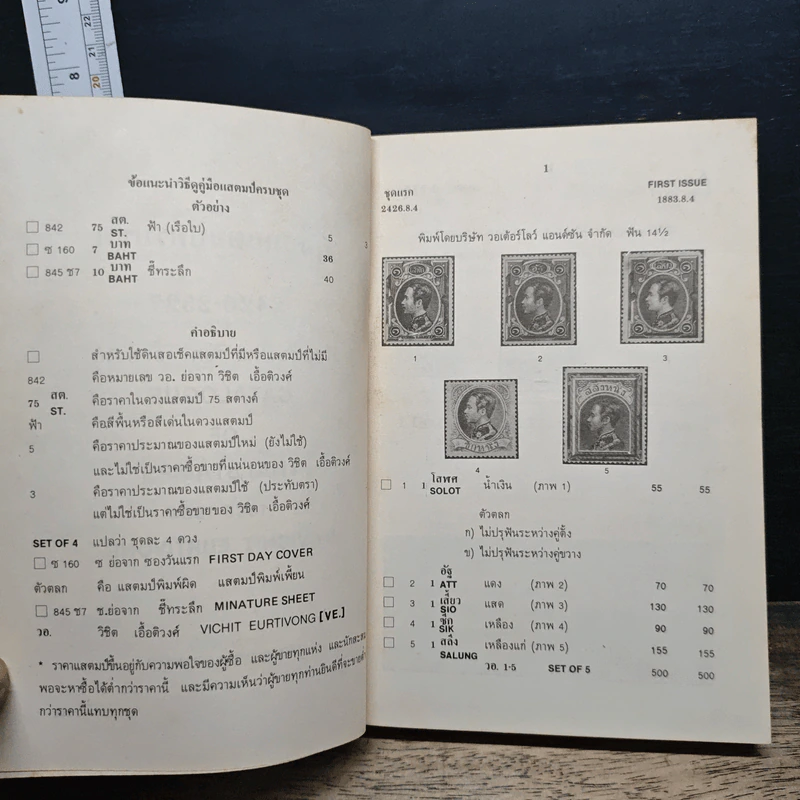 ข้อแนะนำวิธีดูคู่มือแสตมป์ครบชุด
ตัวอย่าง
842 75 สต. ST. ฟ้า (เรือใบ) 5 3
ซ 160 7 บาท BAHT 36
845 ช7 10 บาท BAHT ชี๊ทระลึก 40
คำอธิบาย
สำหรับใช้ดินสอเช็คแสตมป์ที่มีหรือแสตมป์ที่ไม่มี
842 คือหมายเลข วอ. ย่อจาก วิชิต เอื้อติวงศ์
75 สต. ST. คือราคาในดวงแสตมป์ 75 สตางค์
ฟ้า คือสีพื้นหรือสีเด่นในดวงแสตมป์
5 คือราคาประมาณของแสตมป์ใหม่ (ยังไม่ใช้)
และไม่ใช่เป็นราคาซื้อขายที่แน่นอนของ วิชิต เอื้อติวงศ์
3 คือราคาประมาณของแสตมป์ใช้ (ประทับตรา)
แต่ไม่ใช่เป็นราคาซื้อขายของ วิชิต เอื้อติวงศ์
SET OF 4 แปลว่า ชุดละ 4 ดวง
ซ 160 ซ ย่อจาก ซองวันแรก FIRST DAY COVER
ตัวตลก คือ แสตมป์พิมพ์ผิด แสตมป์พิมพ์เพี้ยน
845 ช7 ช.ย่อจาก ชี๊ทระลึก MINATURE SHEET
วอ. วิชิต เอื้อติวงศ์ VICHIT EURTIVONG [VE.]
* ราคาแสตมป์ขึ้นอยู่กับความพอใจของผู้ซื้อ และผู้ขายทุกแห่ง และนักสะสม
พอจะหาซื้อได้ต่ำกว่าราคานี้ และมีความเห็นว่าผู้ขายทุกท่านยินดีที่จะขายต่ำ
กว่าราคานี้แทบทุกชุด
1
ชุดแรก FIRST ISSUE
2426.8.4 1883.8.4
พิมพ์โดยบริษัท วอเตอร์โลว์ แอนด์ซัน จำกัด ฟัน 14½
1 2 3
ซีกหนึ่ง สลึงหนึ่ง
4 5
1 1 โสฬศ SOLOT น้ำเงิน (ภาพ 1) 55 55
ตัวตลก
ก) ไม่ปรุฟันระหว่างคู่ตั้ง
ข) ไม่ปรุฟันระหว่างคู่ขวาง
2 1 อัฐ ATT แดง (ภาพ 2) 70 70
3 1 เสี้ยว SIO แสด (ภาพ 3) 130 130
4 1 ซีก SIK เหลือง (ภาพ 4) 90 90
5 1 สลึง SALUNG เหลืองแก่ (ภาพ 5) 155 155
วอ. 1-5 SET OF 5 500 500
8
9
20
21
22